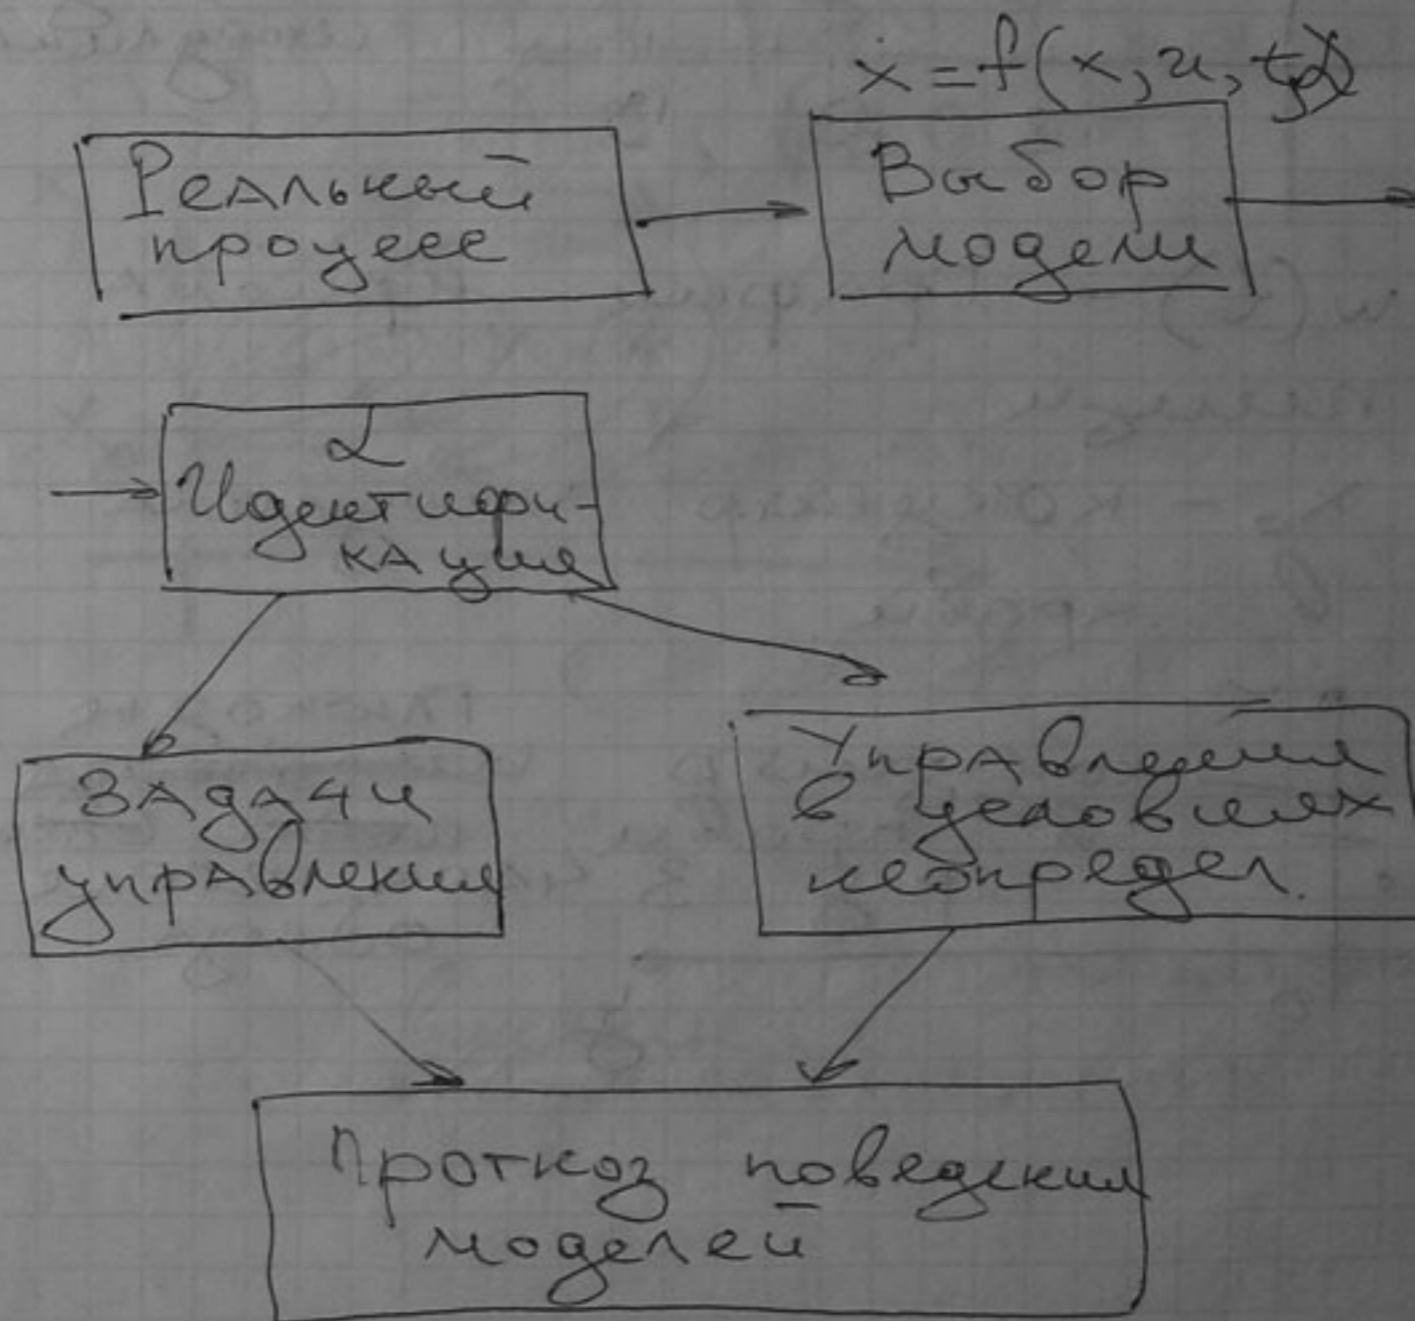 ẋ = f(x, u, t, α)
Реальный
процесс
Выбор
модели
α
Идентифи-
кация
Задачи
управления
Управления
в условиях
неопредел.
Прогноз поведения
моделей